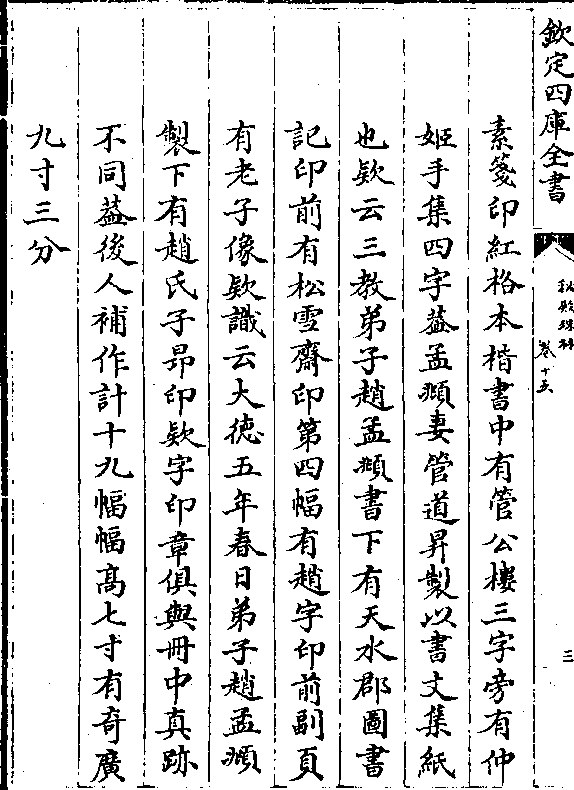 欽定四庫全書
秘殿珠林
卷十五
三
素箋印紅格本楷書中有管公樓三字旁有仲
姬手集四字葢孟頫妻管道昇製以書文集紙
也欵云三教弟子趙孟頫書下有天水郡圖書
記印前有松雪齋印第四幅有趙字印前副頁
有老子像欵識云大徳五年春日弟子趙孟頫
製下有趙氏子昂印欵字印章俱與冊中真跡
不同葢後人補作計十九幅幅髙七寸有竒廣
九寸三分